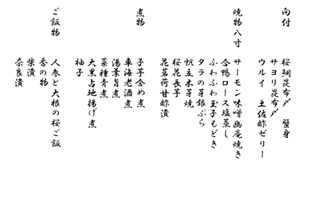 向付
桜鯛昆布〆　蟹身
サヨリ昆布〆
ウルイ　土佐酢ゼリー
焼物八寸
サーモン味噌幽庵焼き
合鴨ロース塩蒸し
ふわふわ玉子もどき
タラの芽銀ぷら
帆立木の芽焼
桜花長芋
花茗荷甘酢漬
煮物
子芋含め煮
車海老酒煮
湯葉旨煮
菜種青煮
大黒占地揚げ煮
柚子
ご飯物
人参と大根の桜ご飯
香の物
柴漬
奈良漬